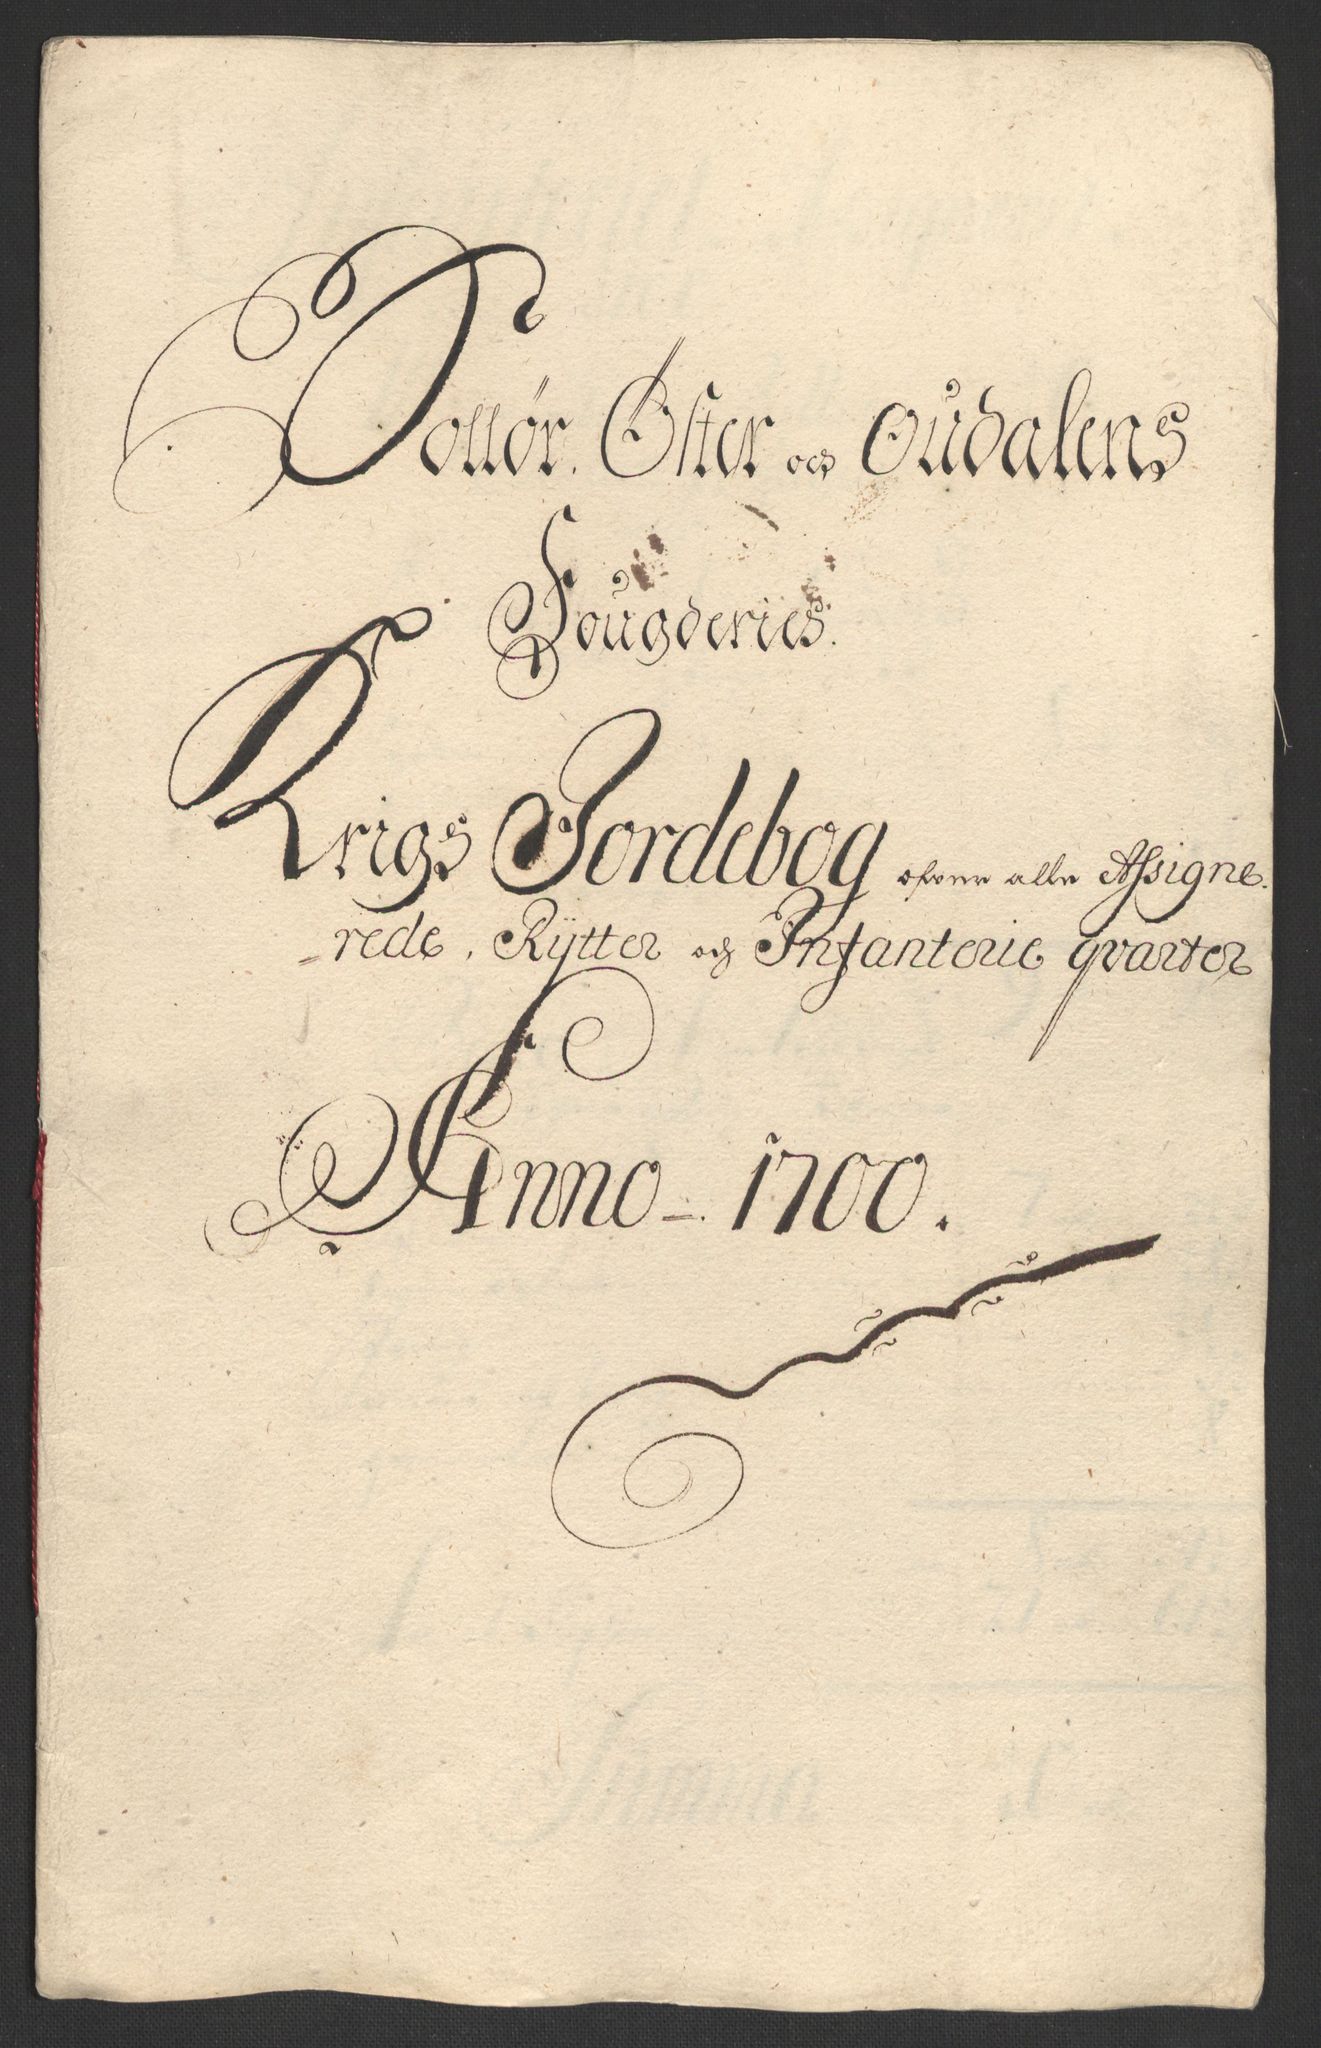 Sollør. Øster och Oudalens
Fougderies.
Krigs Jordebog ofver alle Assigne-
-rede, Rytter och Infanterie qvarter
Anno - 1700.